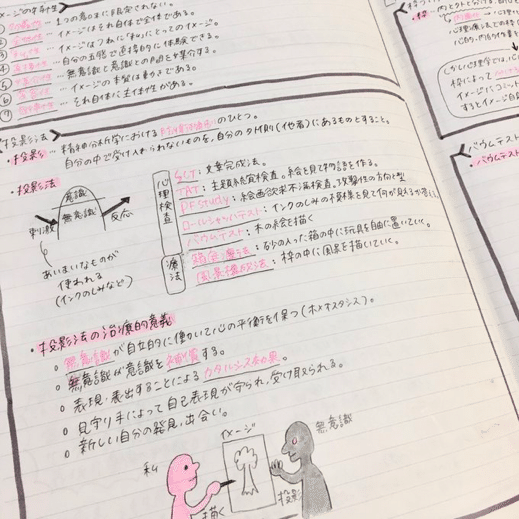 イメージの
… 1つの意味に限定されない。
… イメージはそれ自体で全体である。
… イメージはつねに「私」にとってのイメージ。
… 自分の五感で直接的に体験できる。
… 無意識と意識との
… イメージの本質は動きである。
… それ自体に主体性がある。
投影法
・投影 … 精神分析学における防衛機制のひとつ。
自分の中で受け入れられないものを、自分の外側(他者)にあるものとすること。
・投影法
意識
無意識
刺激
反応
あいまいなものが
使われる
(インクのしみなど)
心理検査
SCT : 文章完成法。
TAT : 主題統覚検査。絵を見て物語を作る。
PFstudy : 絵画欲求不満検査。攻撃性の方向と型
ロールシャッハテスト : インクのしみの刺激を見て何が見えるか答える。
バウムテスト : 木の絵を描く
療法
箱庭療法 : 砂の入った箱の中に玩具を自由に置いていく。
風景構成法 : 枠の中に風景を描いていく。
・投影法の治療的意義
○ 無意識が自立的に働いて心の平衡を保つ(ホメオスタシス)。
○ 無意識が意識を補償する。
○ 表現・表出することによるカタルシス効果。
○ 見守り手によって自己表現が守られ、受け取られる。
○ 新しい自分の発見、出会い。
私
イメージ
無意識
描く
投影
・枠
バウムテスト
・バウムテス